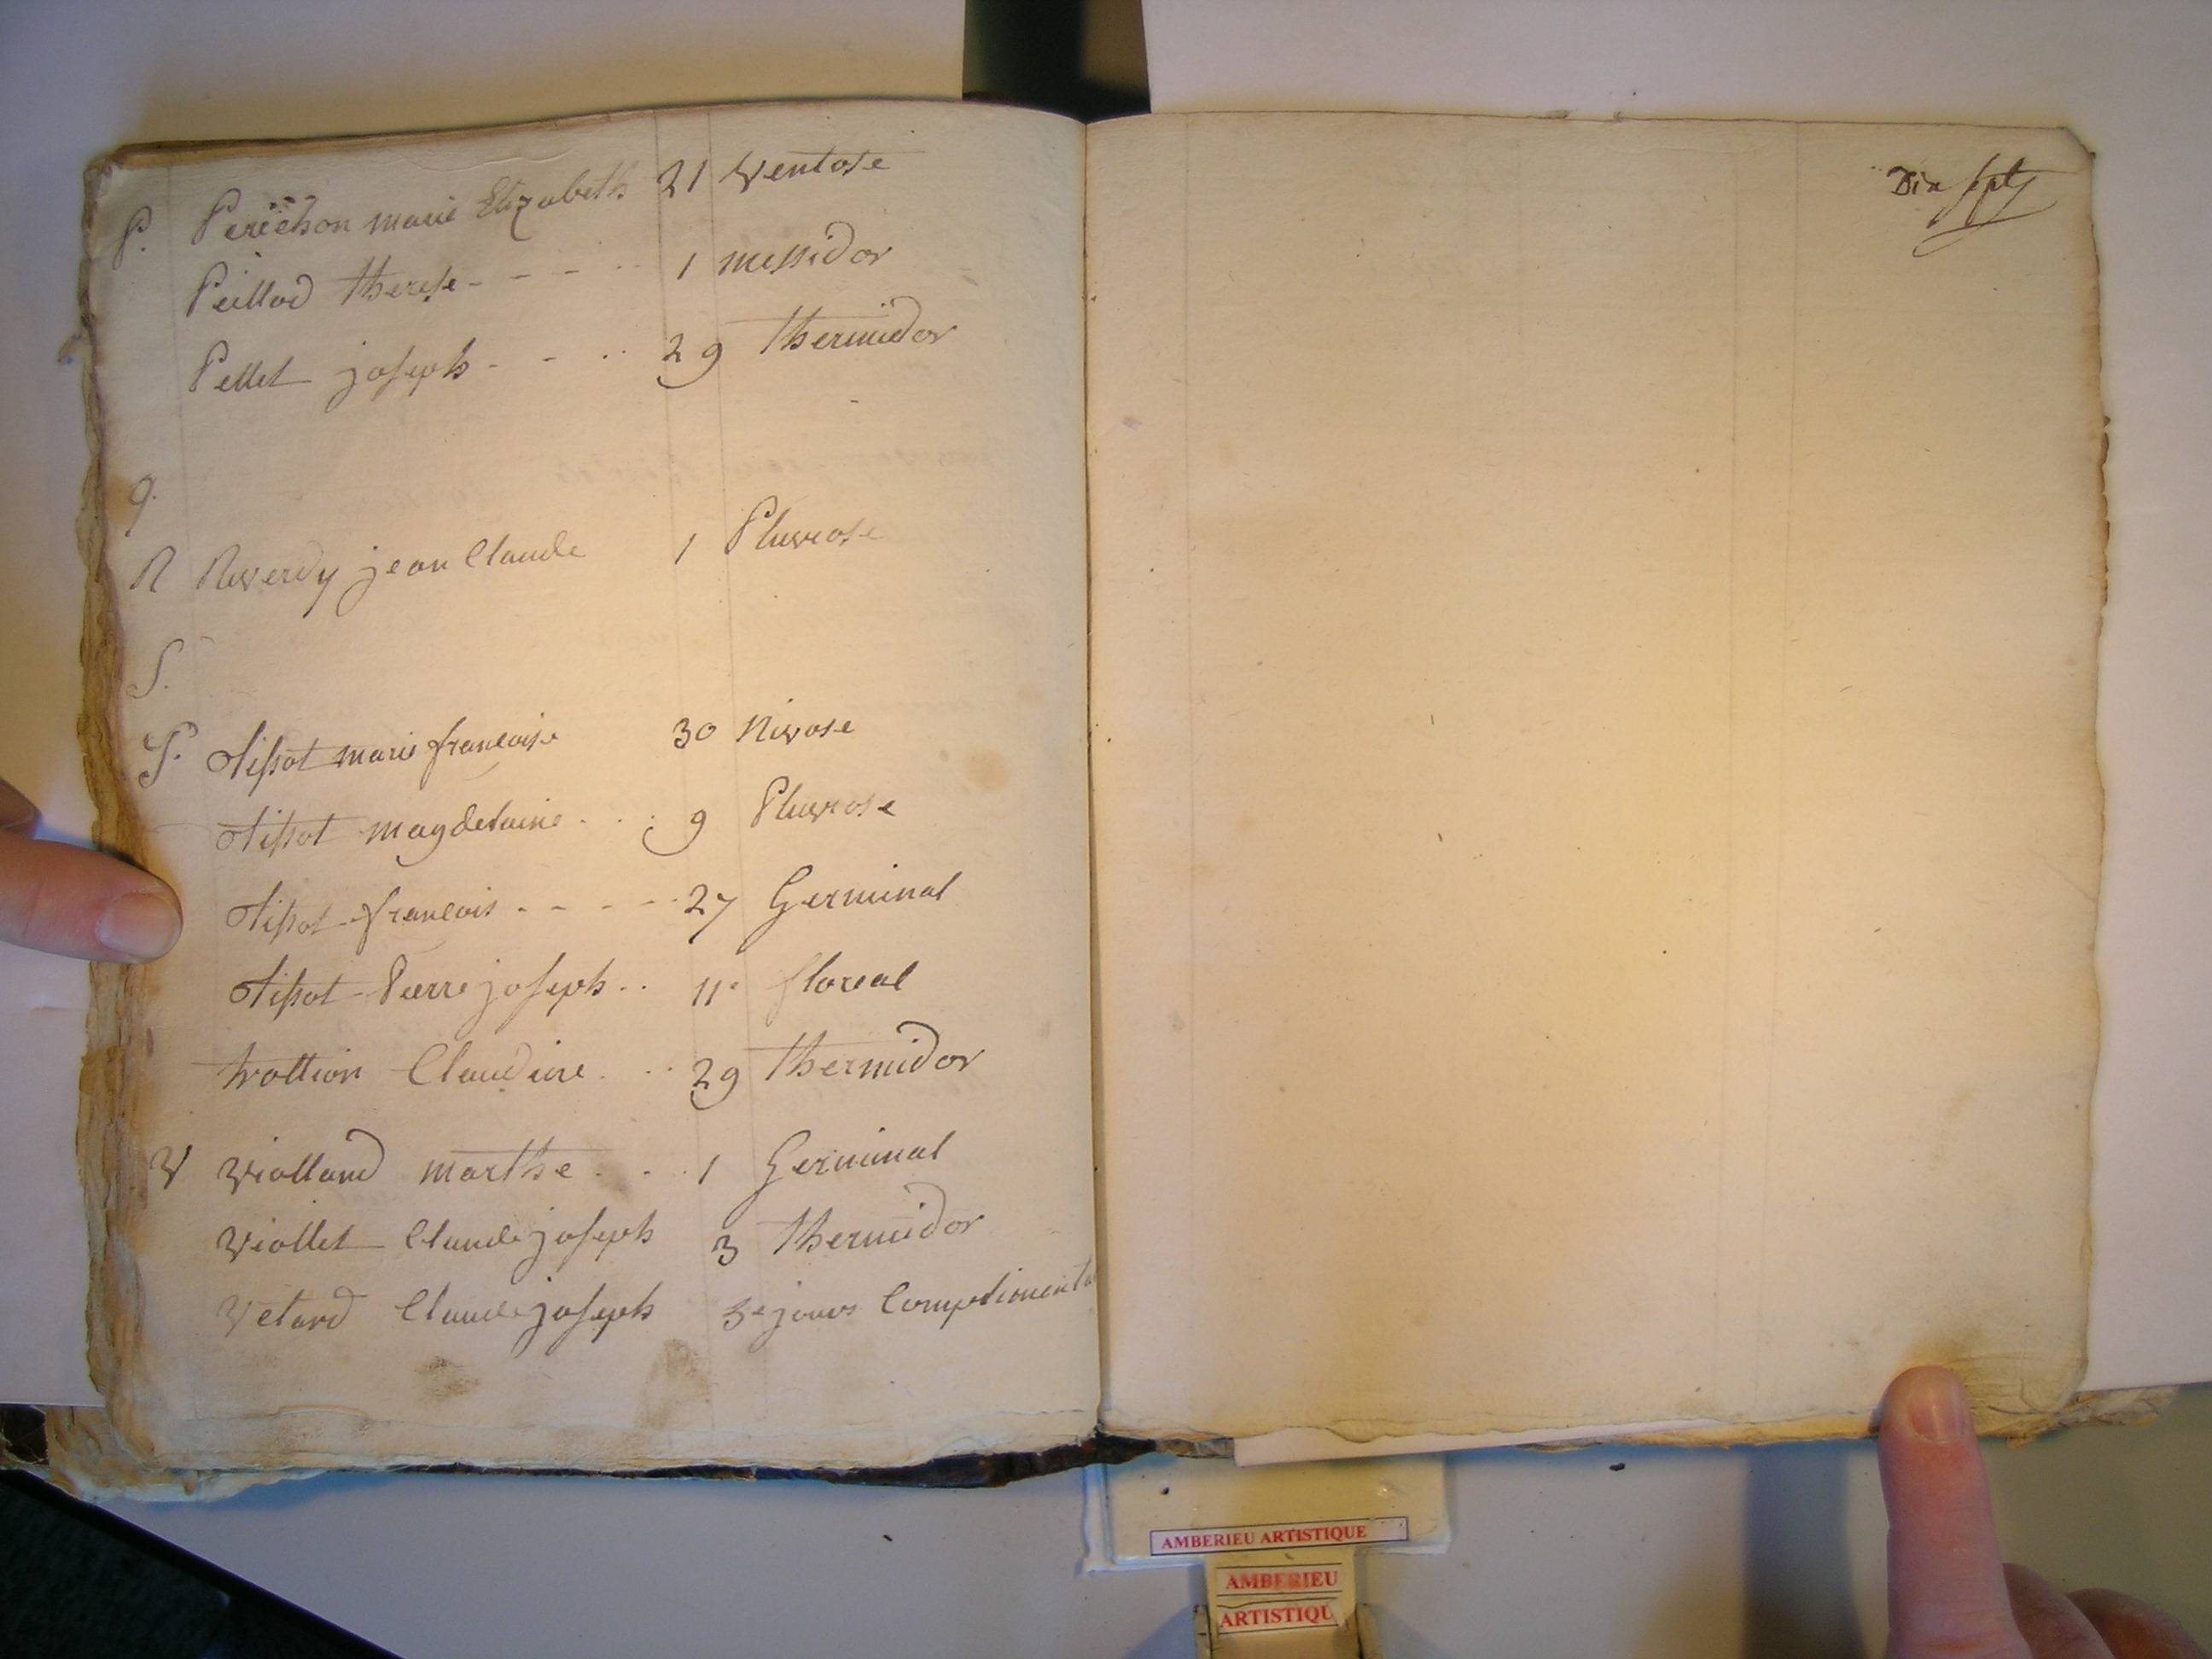 P. Perréchon marie Elizabeth 21 Ventose
Peillod therese - - - .. 1 messidor
Pellet joseph - - .. 29 thermidor
q.
R Reverdy jean Claude 1 Pluviose
S.
T. Tissot marie francoise 30 Nivose
Tissot magdelaine . . . 9 Pluviose
Tissot francois . - - - - 27 Germinal
Tissot Pierre joseph .. 11 floreal
trollion Claudine . .. 29 thermidor
V Violland marthe . . . 1 Germinal
Viollet Claude joseph 3 thermidor
Vetard Claude joseph 3e jours Complimenta
Dix sept
AMBERIEU ARTISTIQUE
AMBERIEU
ARTISTIQU